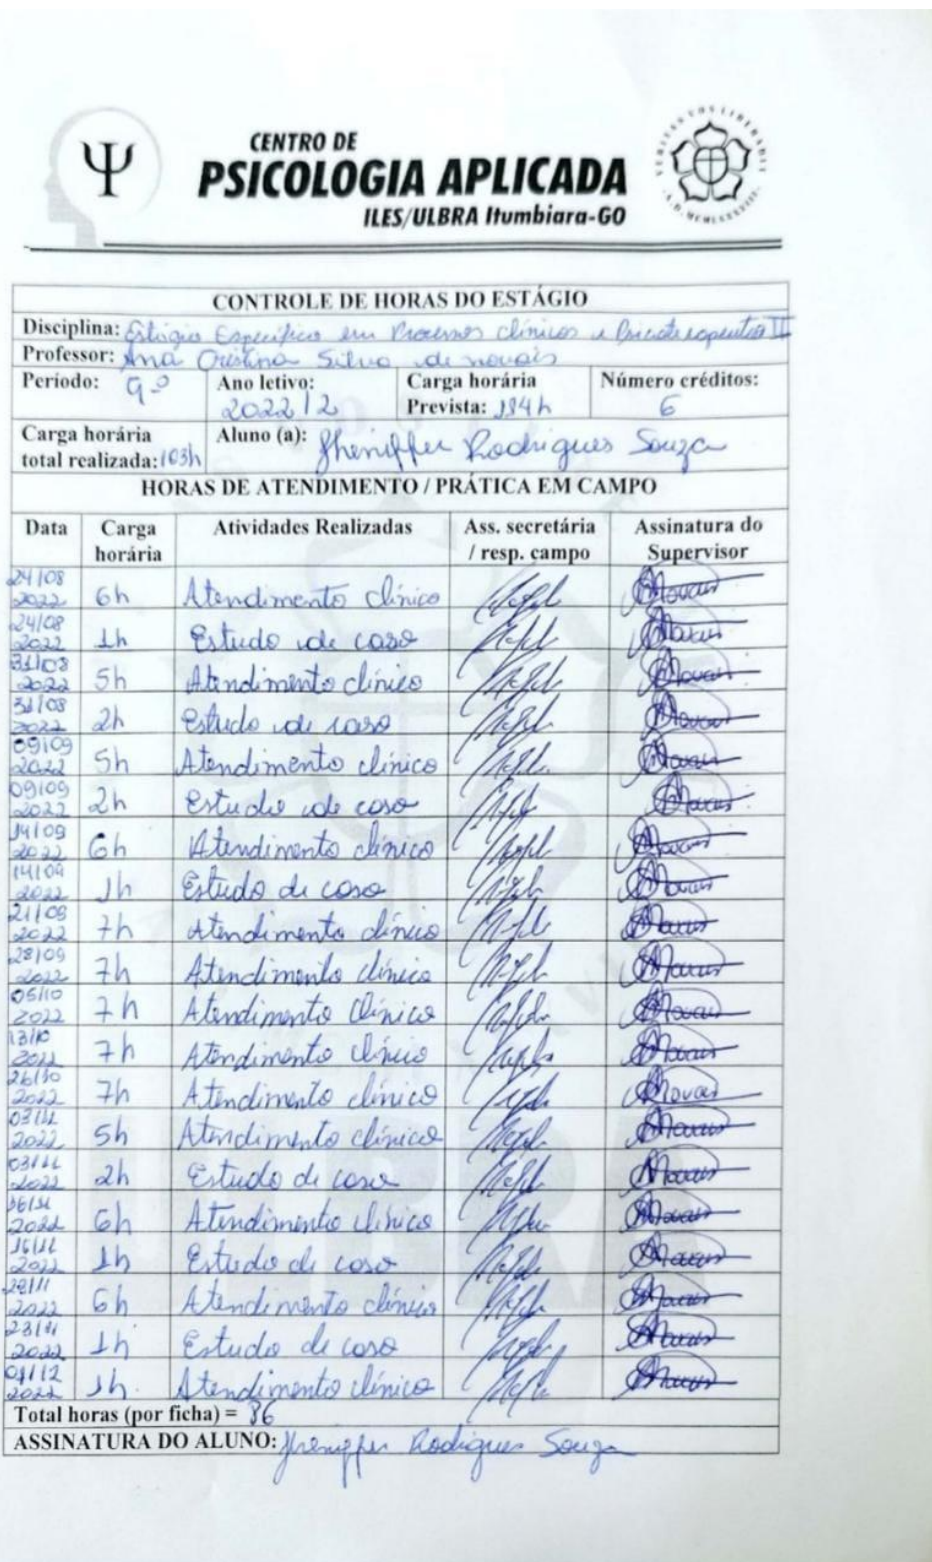 VERITAS VOS LIBERABIT
Ψ
CENTRO DE
PSICOLOGIA APLICADA
ILES/ULBRA Itumbiara-GO
CONTROLE DE HORAS DO ESTÁGIO
Disciplina: Estágio Específico em Processos clínicos e Psicoterapeutico III
Professor: Ana Cristina Silva de novais
Período: 9º Ano letivo: 2022/2 Carga horária Prevista: 114h Número créditos: 6
Carga horária total realizada: 103h Aluno (a): Jheniffer Rodrigues Souza
HORAS DE ATENDIMENTO / PRÁTICA EM CAMPO
Data Carga horária Atividades Realizadas Ass. secretária / resp. campo Assinatura do Supervisor
24/08 2022 6h Atendimento clínico Novais
24/08 2022 1h Estudo de caso Novais
31/08 2022 5h Atendimento clínico Novais
31/08 2022 2h Estudo de caso Novais
09/09 2022 5h Atendimento clínico Novais
09/09 2022 2h Estudo de caso Novais
14/09 2022 6h Atendimento clínico Novais
14/09 2022 1h Estudo de caso Novais
21/09 2022 7h Atendimento clínico Novais
28/09 2022 7h Atendimento clínico Novais
05/10 2022 7h Atendimento Clínico Novais
13/10 2022 7h Atendimento clínico Novais
26/10 2022 7h Atendimento clínico Novais
03/11 2022 5h Atendimento clínico Novais
03/11 2022 2h Estudo de caso Novais
16/11 2022 6h Atendimento clínico Novais
16/11 2022 1h Estudo de caso Novais
2022 6h Atendimento clínico Novais
23/11 2022 1h Estudo de caso Novais
01/12 2022 1h. Atendimento clínico Novais
Total horas (por ficha) = 86
ASSINATURA DO ALUNO: Jheniffer Rodrigues Souza
ULBRA